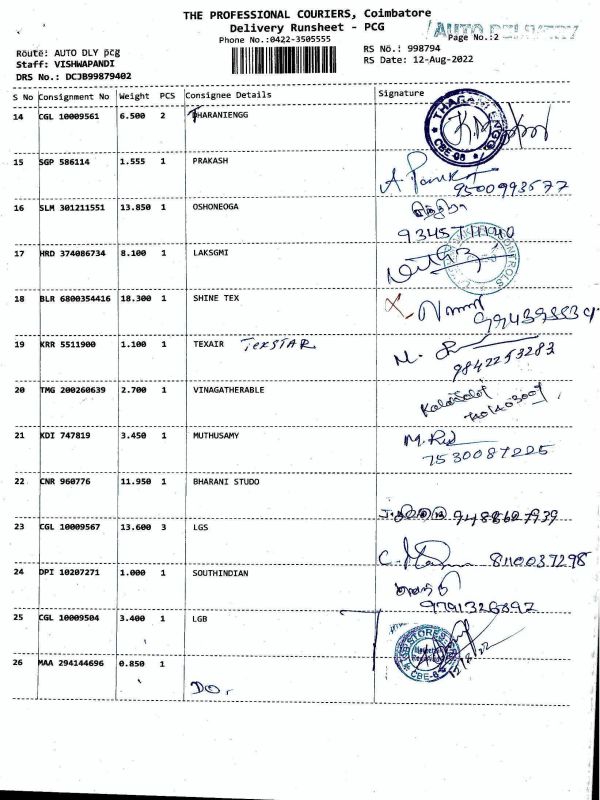 THE PROFESSIONAL COURIERS, Coimbatore
AUTO DELIVERY
Delivery Runsheet - PCG
Page No.:2
Phone No.:0422-3505555
Route: AUTO DLY pcg
RS No.: 998794
Staff: VISHWAPANDI
RS Date: 12-Aug-2022
DRS No.: DCJB99879402
S No Consignment No Weight PCS Consignee Details Signature
14 CGL 10009561 6.500 2 DHARANIENGG
CBE-06
15 SGP 586114 1.555 1 PRAKASH
9500993577
16 SLM 301211551 13.850 1 OSHONEOGA
17 HRD 374086734 8.100 1 LAKSGMI
18 BLR 6800354416 18.300 1 SHINE TEX
19 KRR 5511900 1.100 1 TEXAIR TEXSTAR
9842253283
20 TMG 200260639 2.700 1 VINAGATHERABLE
21 KDI 747819 3.450 1 MUTHUSAMY
7530087225
22 CNR 960776 11.950 1 BHARANI STUDO
9488627939
23 CGL 10009567 13.600 3 LGS
8110037298
24 DPI 10207271 1.000 1 SOUTHINDIAN
25 CGL 10009504 3.400 1 LGB
26 MAA 294144696 0.850 1
CBE-6
12/8/22
DO.